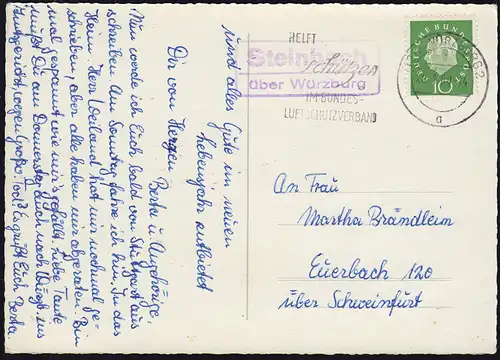 HELFT
schützen
IM BUNDES-
LUFTSCHUTZVERBAND
Steinbach
über Würzburg
DEUTSCHE BUNDESPOST
10
a
und alles Gute im neuen
Lebensjahr entbietet
Dir von Herzen
Berta u. Angehörige.
Nun werde ich Euch bald von Stuttgart aus
schreiben. Am Sonntag fahre ich hin. In das
Heim. Herr Weiland hat mir nochmal ge-
schrieben, aber alle haben mir abgeraten. Bin
mal gespannt wie mir's gefällt. Liebe Tante
mußt Du am Donnerstag auch nach Würzbg. ins
wegen Es grüßt Euch Berta
An Frau
Martha Brändlein
Euerbach 120
über Schweinfurt